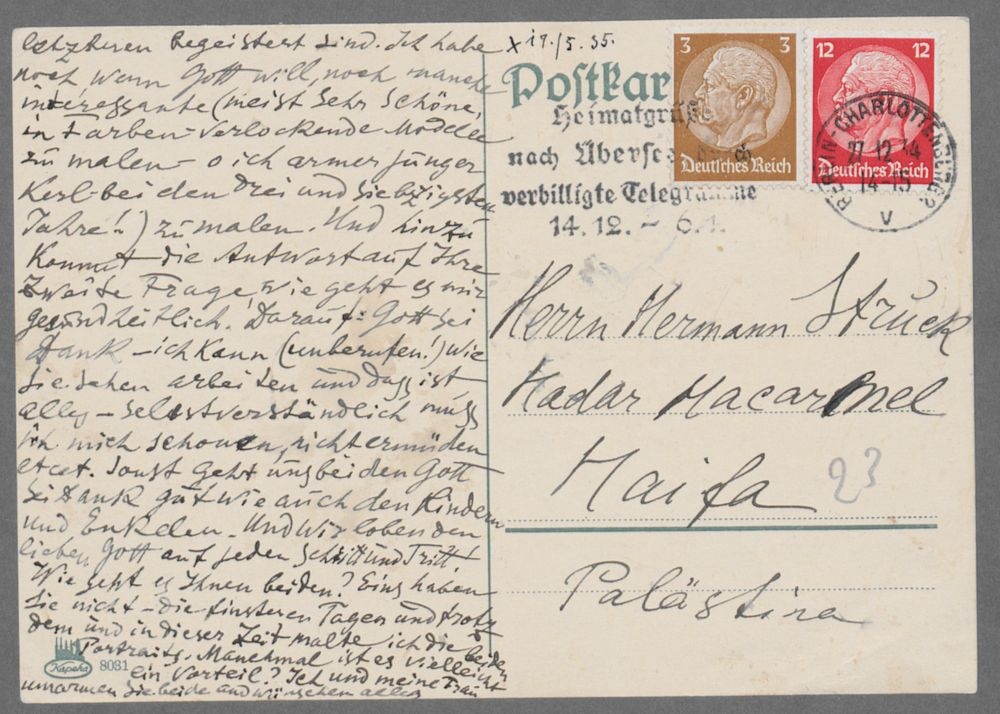 letzteren begeistert sind. Ich habe
noch, wenn Gott will, noch manche
interessante (meist sehr schöne,
in Farben verlockende Modelle
zu malen – o ich armer junger
Kerl bei den drei und siebzigsten
Jahre!) zu malen. Und hinzu
kommt die Antwort auf Ihre
zweite Frage, wie geht es mir
gesundheitlich. Darauf: Gott sei
Dank – ich kann (unberufen!) wie
Sie sehen arbeiten und dass ist
alles – selbstverständlich muss
ich mich schonen, nicht ermüden
etcet. Sonst geht uns beiden Gott
sei Dank gut wie auch den Kindern
und Enkelen. Und wir loben den
lieben Gott auf jeden Schritt und Tritt!
Wie geht es Ihnen beiden? Eins haben
Sie nicht – die finsteren Tagen und trotz
dem und in dieser Zeit malte ich die beiden
Portraits. Manchmal ist es vielleicht
ein Vorteil? Ich und meine Frau
umarmen Sie beide und wünschen alles
Kapeha 8031
x 19./5. 35.
Postkar
3 3
Deutsches Reich
12 12
Deutsches Reich
Heimatgrüße
nach Übersee
verbilligte Telegramme
14.12. – 6.1.
BERLIN-CHARLOTTENBURG 2
27.12.34
14-15
V
Herrn Hermann Struck
Hadar Hacarmel
Haifa
23
Palästina